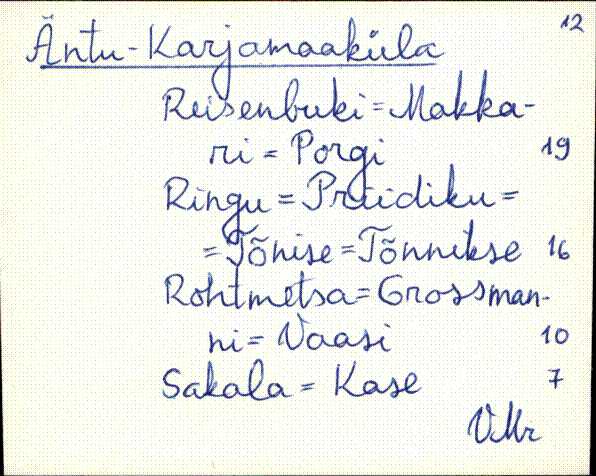 12
Äntu-Karjamaaküla
Reisenbuki = Makka-
ri = Porgi 19
Ringu = Priidiku =
= Tõnise = Tõnnikse 16
Rohtmetsa = Grossman-
ni = Vaasi 10
Sakala = Kase 7
VMr